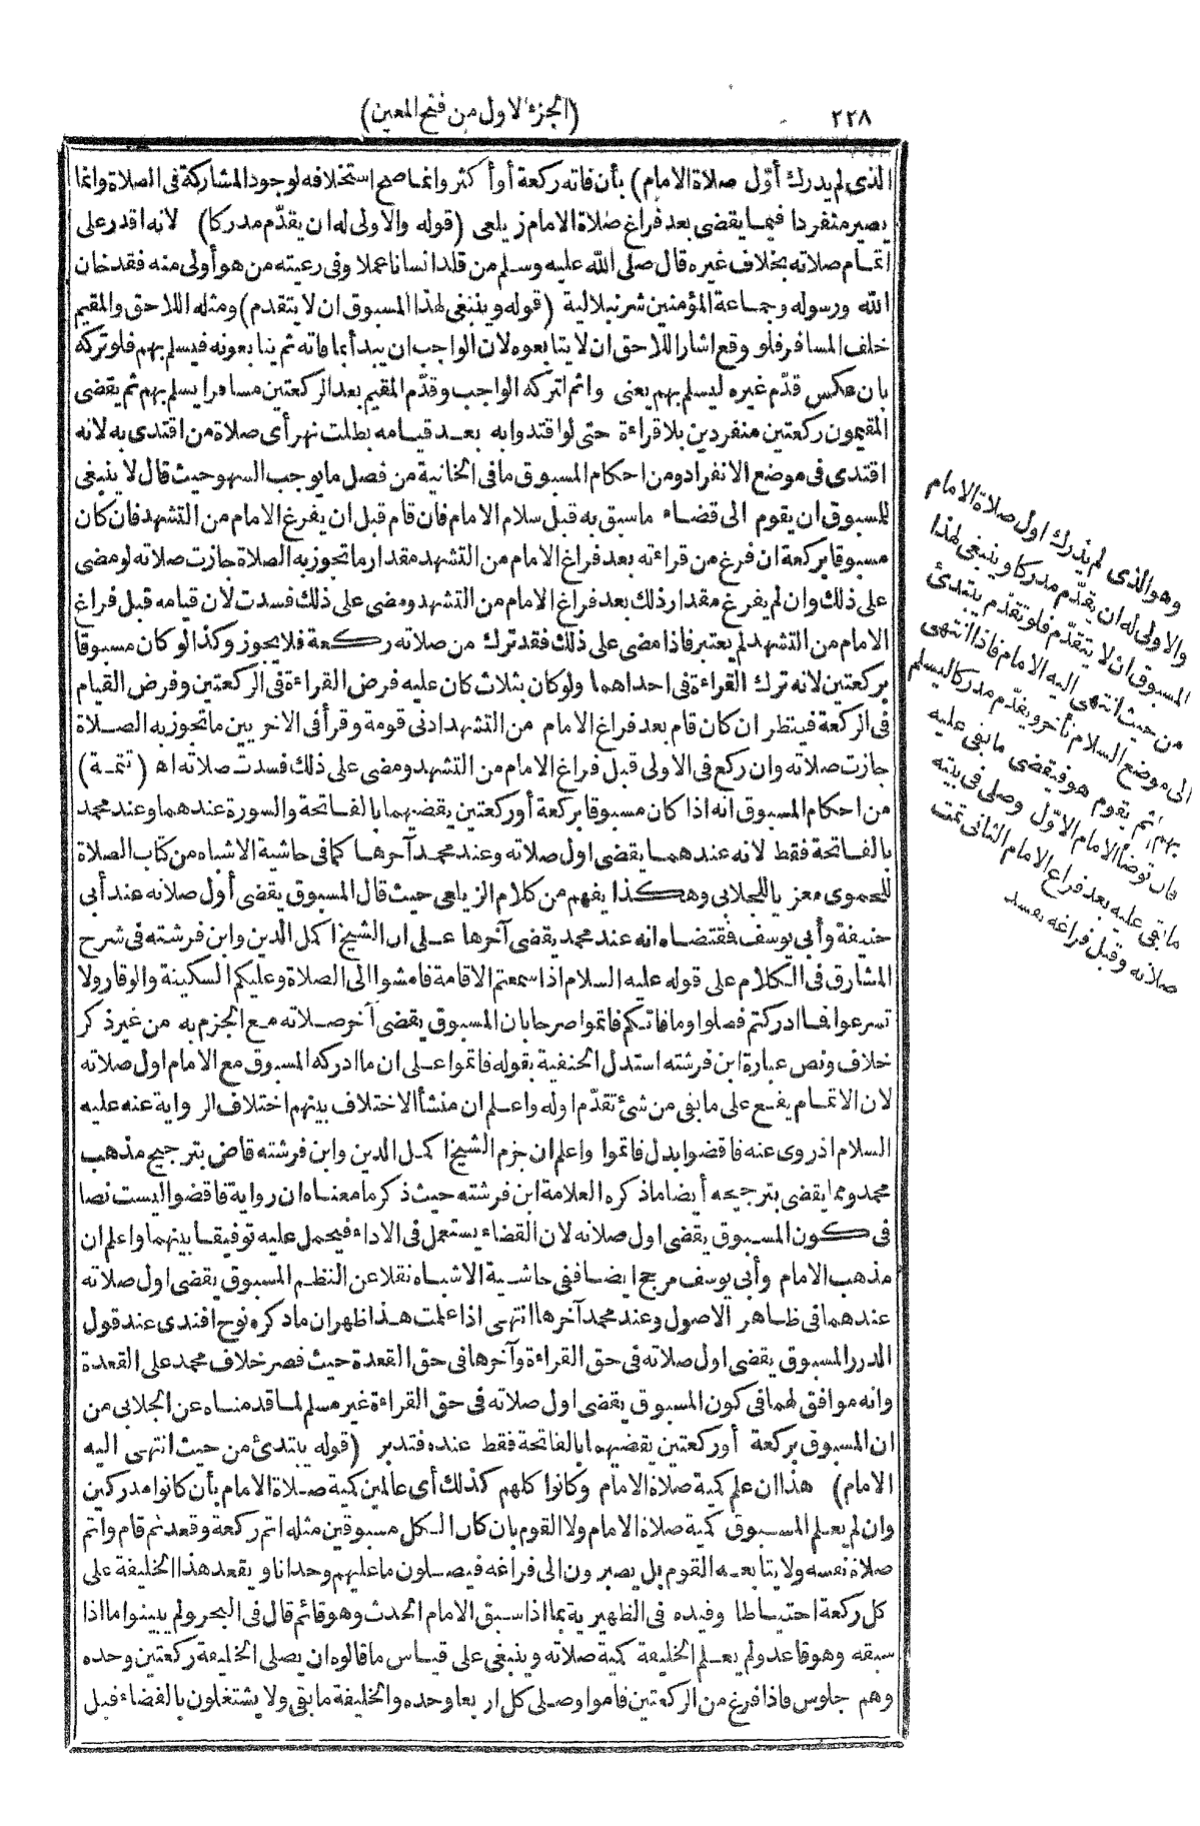 ٢٢٨
(الجزء الاول من فتح المعين)
الذى لم يدرك أوّل صلاة الامام) بأن فاته ركعة أو أكثر وانما صح استخلافه لوجود المشاركة فى الصلاة وانما
يصير منفردا فيما يقضى بعد فراغ صلاة الامام زيلعى (قوله والاولى له ان يقدّم مدركا) لانه اقدر على
اتمام صلاته بخلاف غيره قال صلى الله عليه وسلم من قلد انسانا عملا وفى رعيته من هو أولى منه فقد خان
الله ورسوله وجماعة المؤمنين شرنبلالية (قوله وينبغى لهذا المسبوق ان لا يتقدم) ومثله اللاحق والمقيم
خلف المسافر فلو وقع اشار اللاحق ان لا يتابعوه لان الواجب ان يبدأ بما فاته ثم يتابعونه فيسلم بهم فلو تركه
بان عكس قدّم غيره ليسلم بهم يعنى واثم لتركه الواجب وقدّم المقيم بعد الركعتين مسافرا يسلم بهم ثم يقضى
المقيمون ركعتين منفردين بلا قراءة حتى لو اقتدوا به بعد قيامه بطلت نهر أى صلاة من اقتدى به لانه
اقتدى فى موضع الانفراد ومن احكام المسبوق ما فى الخانية من فصل ما يوجب السهو حيث قال لا ينبغى
للمسبوق ان يقوم الى قضاء ما سبق به قبل سلام الامام فان قام قبل ان يفرغ الامام من التشهد فان كان
مسبوقا بركعة ان فرغ من قراءته بعد فراغ الامام من التشهد مقدار ما تجوز به الصلاة جازت صلاته لو مضى
على ذلك وان لم يفرغ مقدار ذلك بعد فراغ الامام من التشهد ومضى على ذلك فسدت لان قيامه قبل فراغ
الامام من التشهد لم يعتبر فاذا مضى على ذلك فقد ترك من صلاته ركعة فلا يجوز وكذا لو كان مسبوقا
بركعتين لانه ترك القراءة فى احداهما ولو كان بثلاث كان عليه فرض القراءة فى الركعتين وفرض القيام
فى الركعة فينظر ان كان قام بعد فراغ الامام من التشهد ادنى قومة وقرأ فى الاخريين ما تجوز به الصلاة
جازت صلاته وان ركع فى الاولى قبل فراغ الامام من التشهد ومضى على ذلك فسدت صلاته اه (تتمة)
من احكام المسبوق انه اذا كان مسبوقا بركعة أو ركعتين يقضيهما بالفاتحة والسورة عندهما وعند محمد
بالفاتحة فقط لانه عندهما يقضى اول صلاته وعند محمد آخرها كما فى حاشية الاشباه من كتاب الصلاة
للحموى معزيا للجلابى وهكذا يفهم من كلام الزيلعى حيث قال المسبوق يقضى أول صلاته عند أبى
حنيفة وأبى يوسف فمقتضاه انه عند محمد يقضى آخرها على ان الشيخ اكمل الدين وابن فرشته فى شرح
المشارق فى الكلام على قوله عليه السلام اذا سمعتم الاقامة فامشوا الى الصلاة وعليكم السكينة والوقار ولا
تسرعوا فما ادركتم فصلوا وما فاتكم فاتموا صرحا بان المسبوق يقضى آخر صلاته مع الجزم به من غير ذكر
خلاف ونص عبارة ابن فرشته استدل الحنفية بقوله فاتموا على ان ما ادركه المسبوق مع الامام اول صلاته
لان الاتمام يقع على ما بقى من شئ تقدّم اوله واعلم ان منشأ الاختلاف بينهم اختلاف الرواية عنه عليه
السلام اذ روى عنه فاقضوا بدل فاتموا واعلم ان جزم الشيخ اكمل الدين وابن فرشته قاض بترجيح مذهب
محمد ومما يقضى بترجيحه أيضا ما ذكره العلامة ابن فرشته حيث ذكر ما معناه ان رواية فاقضوا ليست نصا
فى كون المسبوق يقضى اول صلاته لان القضاء يستعمل فى الاداء فيحمل عليه توفيقا بينهما واعلم ان
مذهب الامام وأبى يوسف مرجح ايضا ففى حاشية الاشباه نقلا عن النظم المسبوق يقضى اول صلاته
عندهما فى ظاهر الاصول وعند محمد آخرها انتهى اذا علمت هذا ظهر ان ما ذكره نوح افندى عند قول
الدرر المسبوق يقضى اول صلاته فى حق القراءة وآخرها فى حق القعدة حيث قصر خلاف محمد على القعدة
وانه موافق لهما فى كون المسبوق يقضى اول صلاته فى حق القراءة غير مسلم لما قدمناه عن الجلابى من
ان المسبوق بركعة أو ركعتين يقضيهما بالفاتحة فقط عنده فتدبر (قوله يبتدئ من حيث انتهى اليه
الامام) هذا ان علم كمية صلاة الامام وكانوا كلهم كذلك أى عالمين كمية صلاة الامام بأن كانوا مدركين
وان لم يعلم المسبوق كمية صلاة الامام ولا القوم بان كان الكل مسبوقين مثله اتم ركعة وقعد ثم قام واتم
صلاة نفسه ولا يتابعه القوم بل يصبرون الى فراغه فيصلون ما عليهم وحدانا ويقعد هذا الخليفة على
كل ركعة احتياطا وقيده فى الظهيرية بما اذا سبق الامام الحدث وهو قائم قال فى البحر ولم يبينوا ما اذا
سبقه وهو قاعد ولم يعلم الخليفة كمية صلاته وينبغى على قياس ما قالوه ان يصلى الخليفة ركعتين وحده
وهم جلوس فاذا فرغ من الركعتين قاموا وصلى كل اربعا وحده والخليفة ما بقى ولا يشتغلون بالقضاء قبل
وهو الذى لم يدرك اول صلاة الامام
والاولى له ان يقدّم مدركا وينبغى لهذا
المسبوق ان لا يتقدّم فلو تقدّم يبتدئ
من حيث انتهى اليه الامام فاذا انتهى
الى موضع السلام تأخر ويقدّم مدركا ليسلم
بهم ثم يقوم هو فيقضى ما بقى عليه
فان توضأ الامام الاوّل وصلى فى بيته
ما بقى عليه بعد فراغ الامام الثانى تمت
صلاته وقبل فراغه يفسد